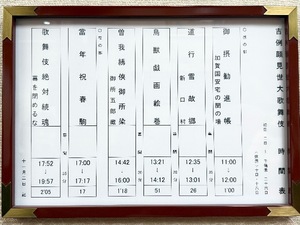 吉例顔見世大歌舞伎 時間表
昼の部
御摂勧進帳
加賀国安宅の関の場
11:00
12:00
1'00
幕間
道行雪故郷
新口村
12:35
13:01
26
幕間
鳥獣戯画絵巻
13:21
14:12
51
幕間
曽我綉俠御所染
御所五郎蔵
14:42
16:00
1'18
夜の部
當年祝春駒
17:00
17:17
17
幕間
歌舞伎絶対続魂
幕を閉めるな
17:52
19:57
2'05
十一月二日